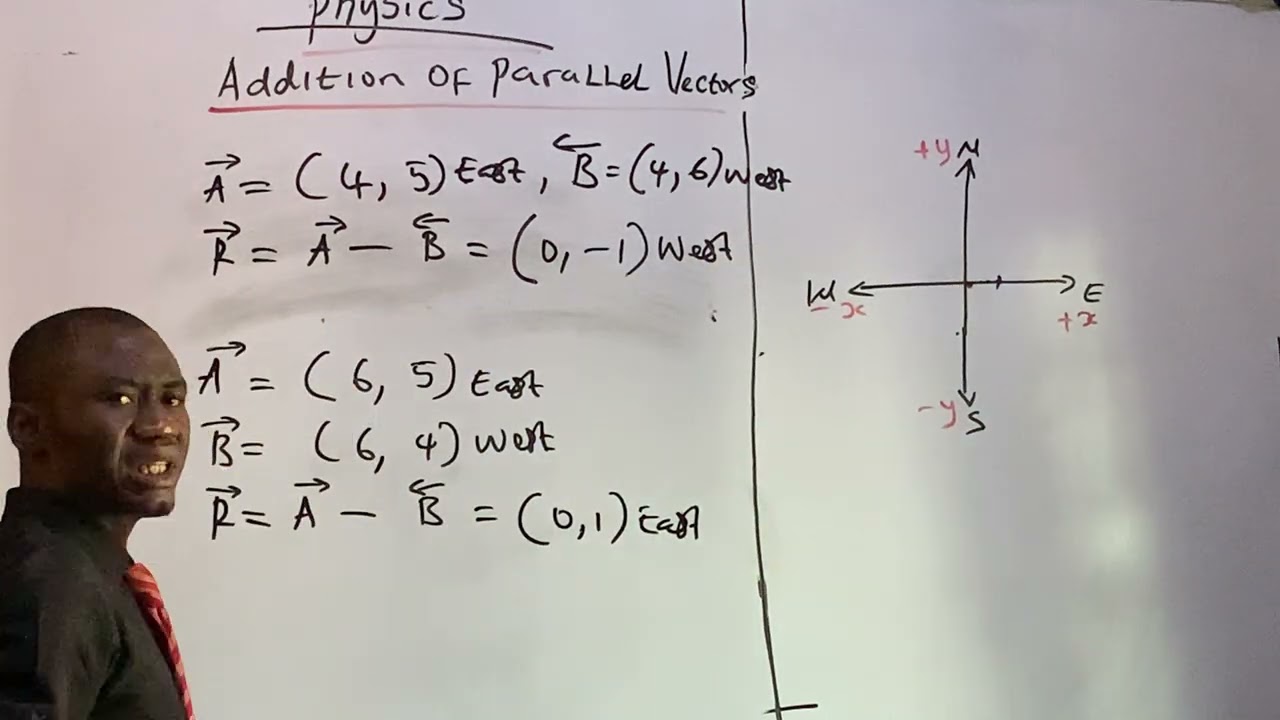 Physics
Addition Of Parallel Vectors
A = (4, 5) East, B = (4, 6) West
R = A − B = (0, −1) West
A = (6, 5) East
B = (6, 4) West
R = A − B = (0, 1) East
+y N
W E
−x +x
−y S